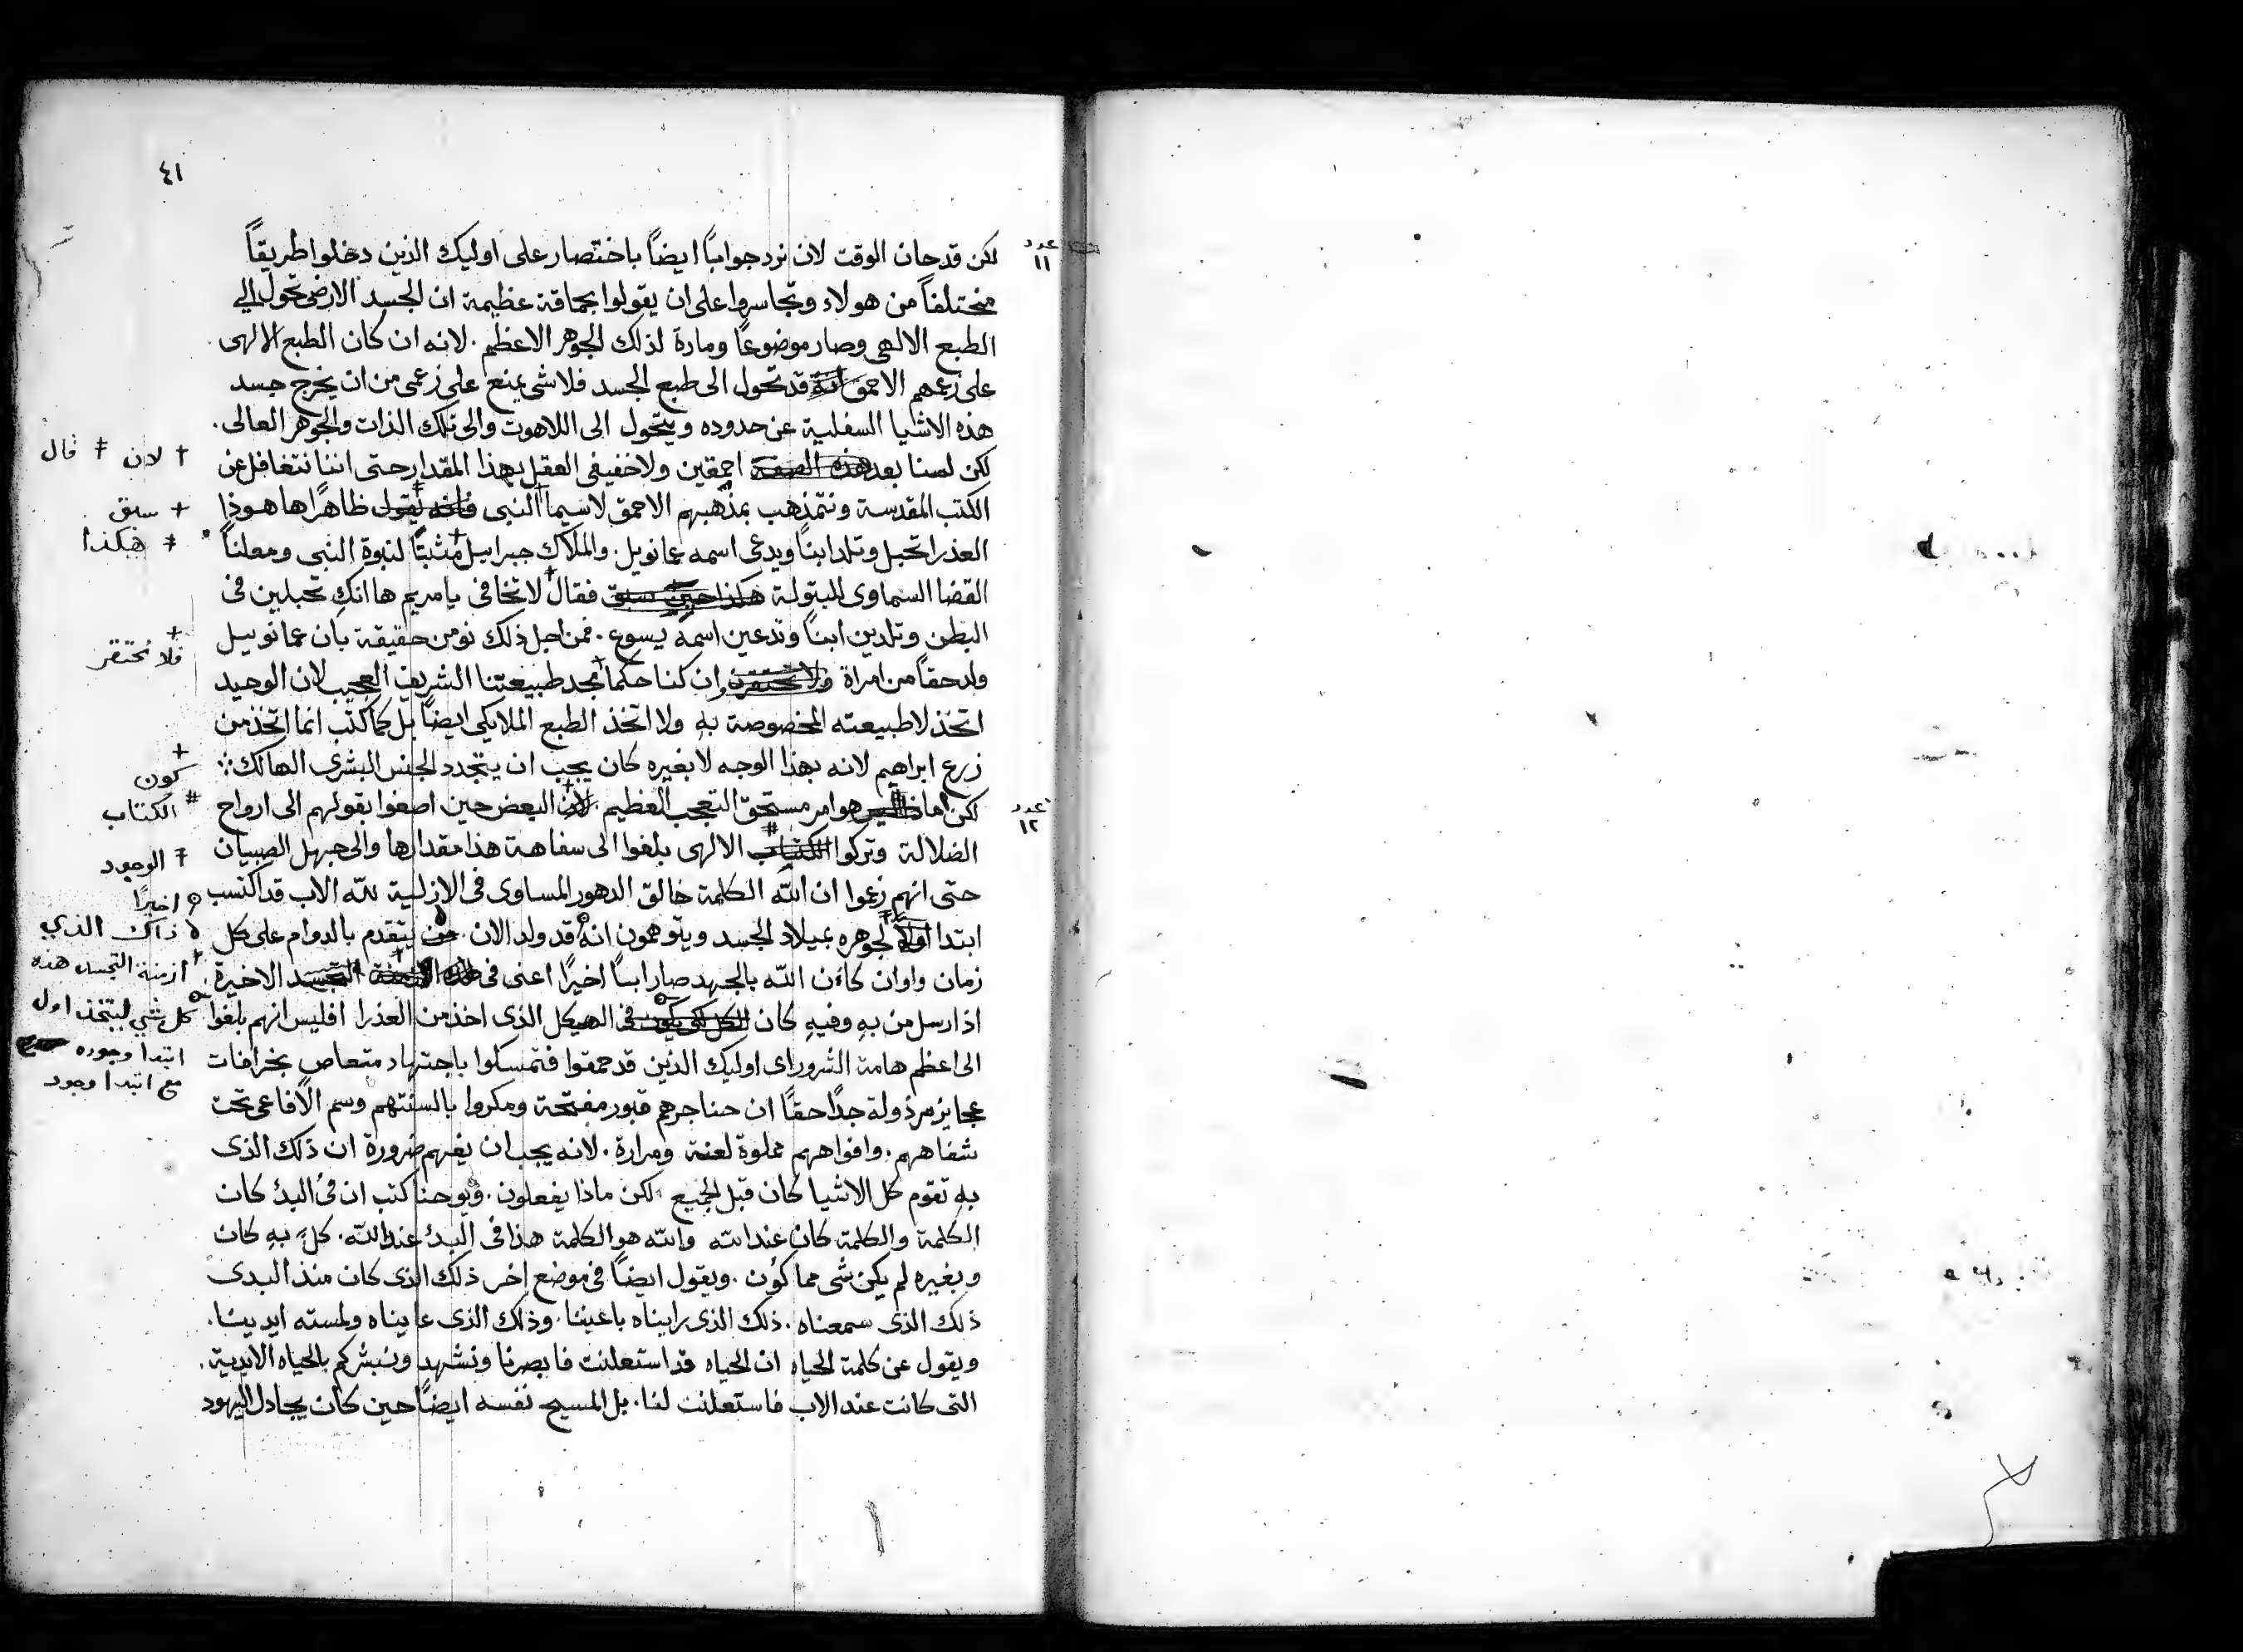 ٤١
عدد
١١
لكن قد حان الوقت لان نرد جواباً ايضاً باختصار على اوليك الذين دخلوا طريقاً
مختلفاً من هولاء وتجاسروا على ان يقولوا بحماقة عظيمة ان الجسد الارضى تحول الى
الطبع الالهى وصار موضوعاً ومادة لذلك الجوهر الاعظم. لانه ان كان الطبع الالهى
على زعمهم الاحمق انه قد تحول الى طبع الجسد فلاشى يمنع على زعمى من ان يخرج جسد
هذه الاشيا السفلية عن حدوده ويتحول الى اللاهوت والى تلك الذات والجوهر العالى.
لكن لسنا بعد هذه الصفة احمقين ولاخفيفى العقل بهذا المقدار حتى اننا نتغافل عن
الكتب المقدسة ونتمذهب بمذهبهم الاحمق لاسيما النبى فانه يقول ظاهرًا ها هوذا
العذرا تحبل وتلد ابناً ويدعى اسمه عمانويل. والملاك جبراييل مثبتاً لنبوة النبى ومعلناً
القضا السماوى للبتولة هكذا حين سبق فقال لاتخافى يا مريم ها انكِ تحبلين فى
البطن وتلدين ابناً وتدعين اسمه يسوع. فمن اجل ذلك نومن حقيقة بان عمانوييل
ولد حقاً من امراة ولا نحتقرن ان كنا حكما مجد طبيعتنا الشريف العجيب لان الوحيد
اتخذ لا طبيعته المخصوصة بهِ ولا اتخذ الطبع الملايكى ايضاً بل كما كتب انما اتخذ من
زرع ابراهيم لانه بهذا الوجه لا بغيره كان يجب ان يتجدد الجنس البشرى الهالك ܀
عدد
١٢
لكن اما هو امر مستحق التعجب العظيم. لان البعض حين اصغوا بقولهم الى ارواح
الضلالة وتركوا الكتاب الالهى بلغوا الى سفاهة هذا مقدارها والى جهل الصبيان
حتى انهم زعموا ان الله الكلمة خالق الدهور المساوى فى الازلية لله الاب قد اكتسب
ابتدا اولاً لجوهره بميلاد الجسد ويتوهمون انه قد ولد الان. من يتقدم بالدوام على كل
زمان واوان كاين الله بالجهد صار ابناً اخيرًا اعنى فى هذه الازمنة التجسد الاخيرة
اذ ارسل من بهِ وفيهِ كان الكل لكى يكون فى الهيكل الذى اخذ من العذرا افليس انهم بلغوا
الى اعظم هامة الشرور اى اوليك الذين قد حمقوا فتمسكوا باجتهاد متعاص بخرافات
عجايز مرذولة جدًا حقًا ان حناجرهم قبور مفتحة ومكروا بالسنتهم وسم الافاعى تحت
شفاههم. وافواههم مملوة لعنة ومرارة. لانه يجب ان يفهم ضرورة ان ذلك الذى
بهِ تقوم كل الاشيا كان قبل الجميع. لكن ماذا يفعلون. ويوحنا كتب ان فى البدئ كان
الكلمة والكلمة كان عند الله والله هو الكلمة هذا فى البدئ عند الله. كلٌ بهِ كان
وبغيره لم يكن شى مما كوّن. ويقول ايضاً فى موضع اخر ذلك الذى كان منذ البدى
ذلك الذى سمعناه. ذلك الذى رايناه باعيننا. وذلك الذى عايناه ولمسته ايدينا.
ويقول عن كلمة الحياه ان الحياه قد استعلنت فابصرنا ونشهد ونبشركم بالحياه الابدية.
التى كانت عند الاب فاستعلنت لنا. بل المسيح نفسه ايضاً حين كان يجادل اليهود
† لان ‡ قال
+ سبق
‡ هكذا
+
فلا نحتقر
+
كون
# الكتاب
‡ الوجود
اخيرًا
ذاك الذي
+ ازمنة التجسد هذه
كل شي ليتخذ اول
ابتدا وجوده
مع ابتدا وجود